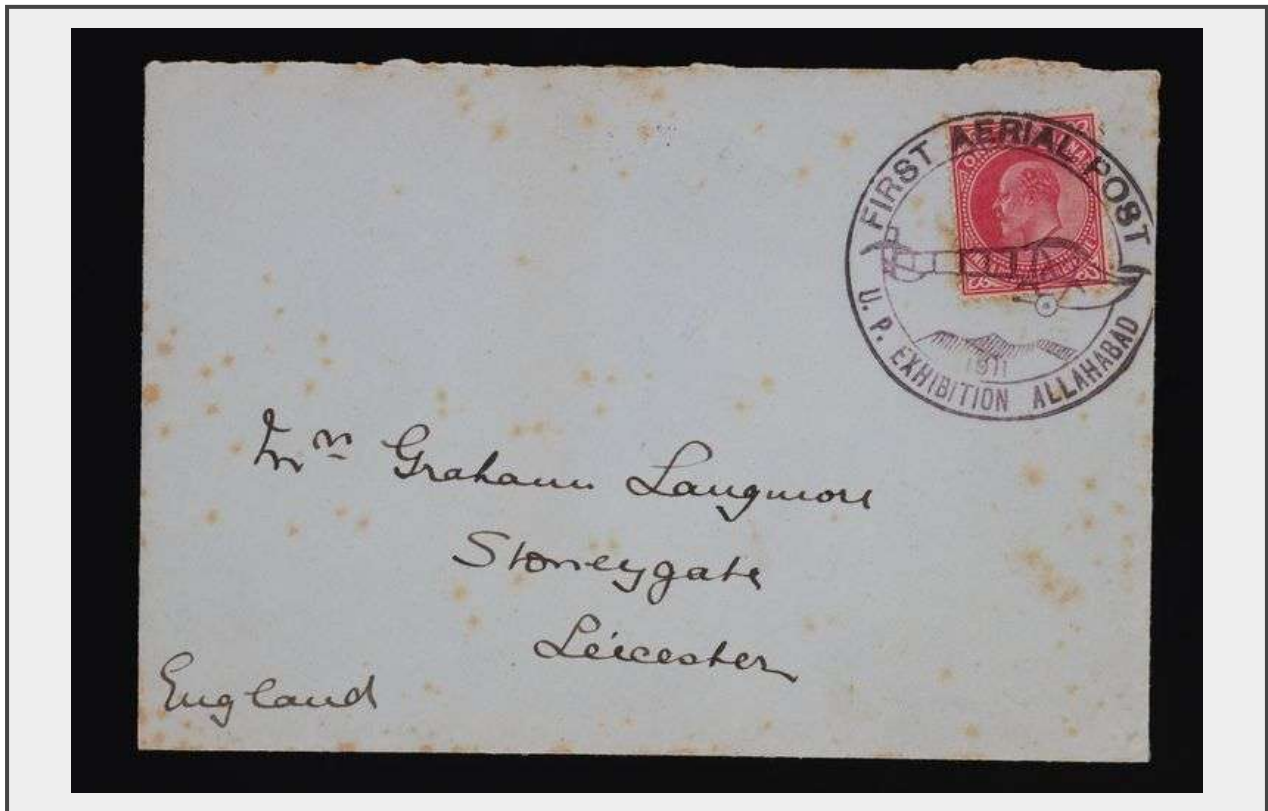 FIRST AERIAL POST
1911
U. P. EXHIBITION ALLAHABAD
Grahame Langmore
Stoneygate
Leicester
England